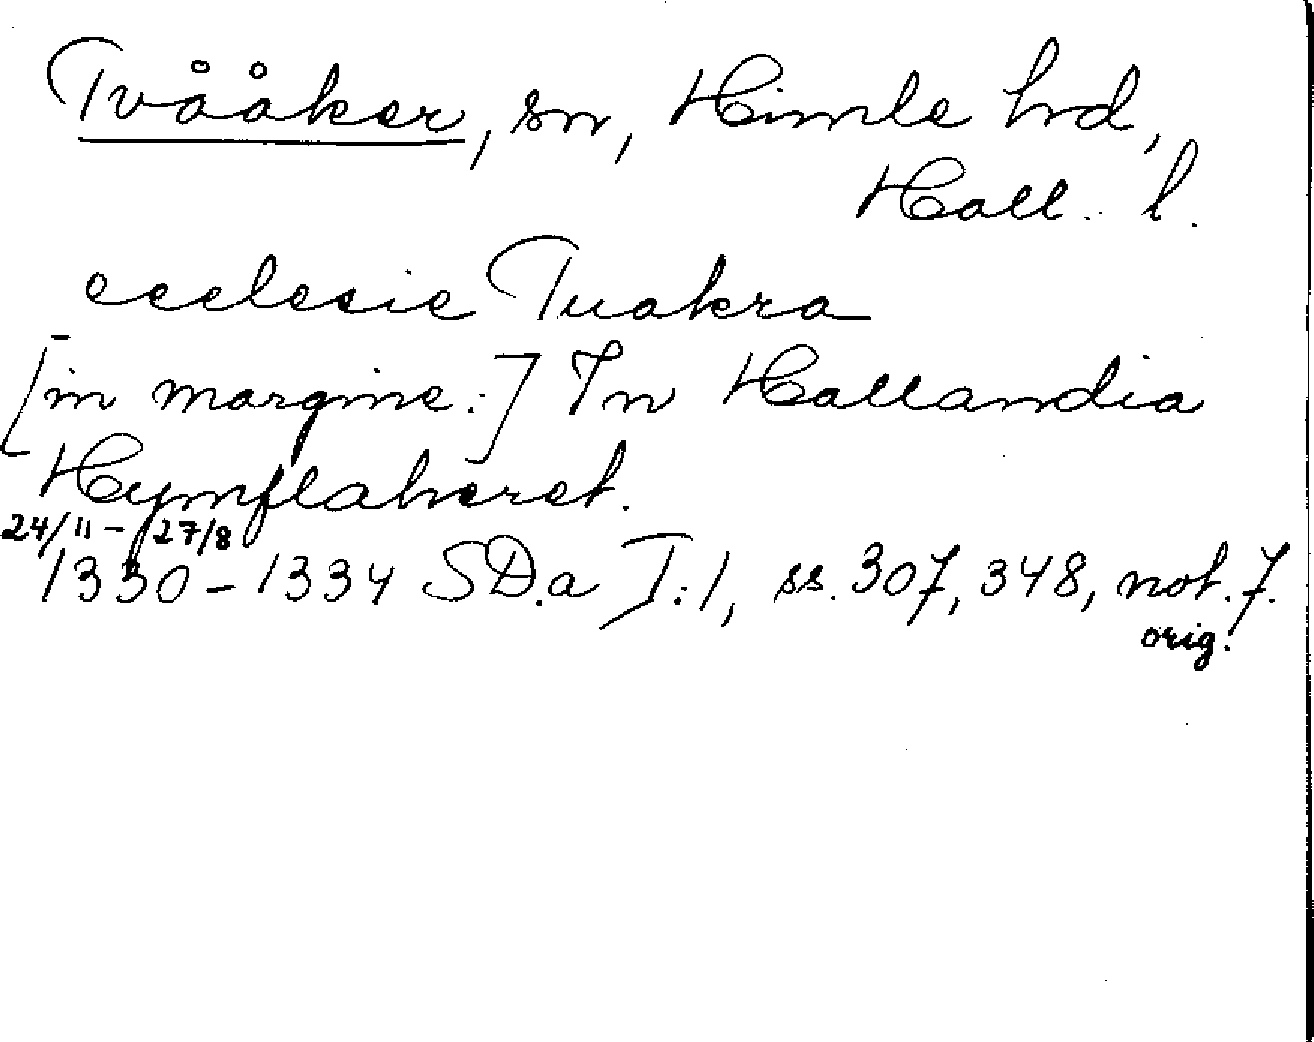 Tvååker, sn, Himle hrd,
Hall. l.
ecclesie Tuakra
[in margine:] In Hallandia
Hymflaheret.
24/11 - 27/8
1330-1334 SD.a I:1, ss. 307, 348, not. 7.
orig.